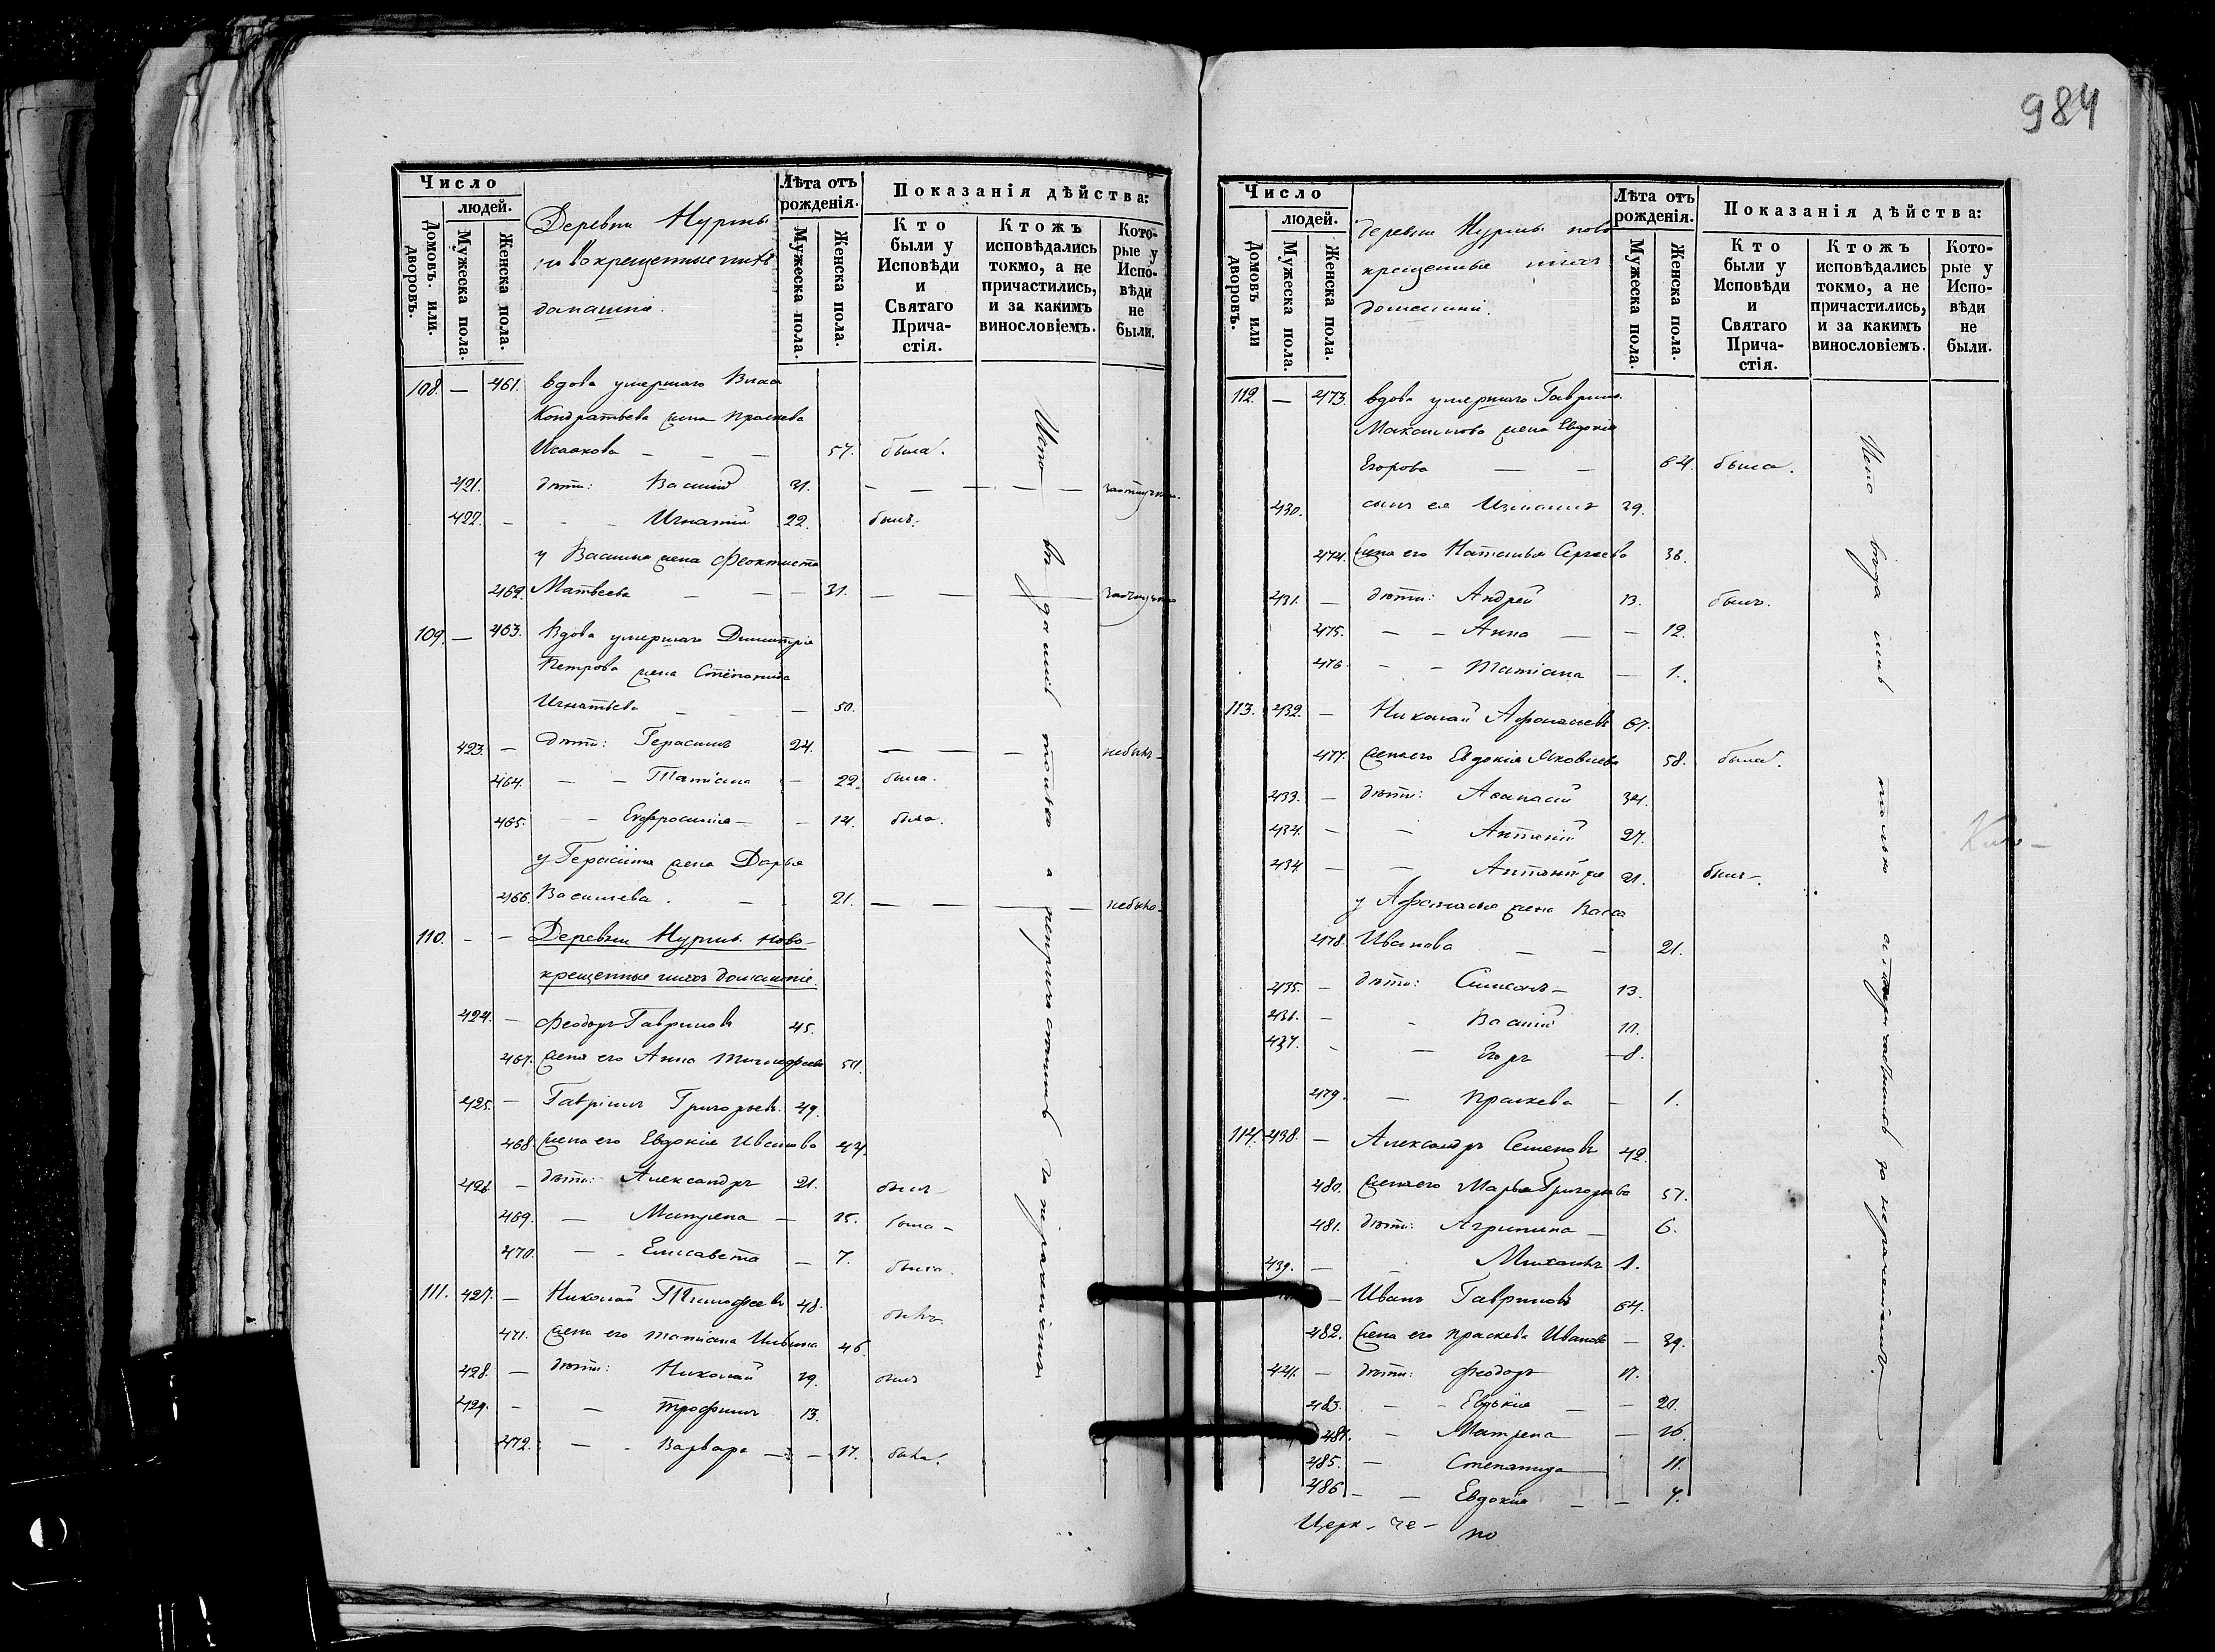 984
Число
людей.
Домовъ. или. дворовъ.
Мужеска пола.
Женска пола.
Деревни Нурмы
новокрещенные ихъ
домашніе.
Лѣта отъ рожденія.
Мужеска пола.
Женска пола.
Показанія дѣйства:
Кто были у Исповѣди и Святаго Прича-стія.
Ктожъ исповѣдались токмо, а не причастились, и за какимъ винословіемъ.
Кото-рые у Испо-вѣди не были.
108. — 461. вдова умершаго Власа
Кондратьева жена Праскева
Исаакова — — — 57. была.
421. дѣти: Василій 31. — — — — —
422. — — — Игнатій 22. былъ.
у Василья жена Феоктиста
462. Матвеева — — — 31. — — —
109. — 463. Вдова умершаго Димитрія
Петрова жена Степанида
Игнатьева — — — 50.
423. — дѣти: Герасимъ 24. — — — небылъ
464. — — Татіана — 22. была.
465. — — Евфросинія — — 14. была.
у Герасима жена Дарья
466. Васильева. — — 21. — — — — небыла
110. — — Деревни Нурмы ново-
крещенные ихъ домашніе.
424. — Феодоръ Гавриловъ 45.
467. жена его Анна Тимофеева 50.
425. — Гавріилъ Григорьевъ. 49.
468. жена его Евдокія Иванова 44.
426. — дѣти: Александръ 21. былъ
469. — Матрена — 15. была —
470. — — Елисавета — 7. была.
111. 427. — Николай Тимофеевъ 48. былъ
471. жена его Татіана Ильина 46.
428. — дѣти: Николай 19. былъ
429. — — Трофимъ 13.
472. — — Варвара — — 17. была.
только а непричастились за нераченіемъ.
Число
людей.
Домовъ или дворовъ.
Мужеска пола.
Женска пола.
Деревни Нурмы ново
крещенные ихъ
домашніи.
Лѣта отъ рожденія.
Мужеска пола.
Женска пола.
Показанія дѣйства:
Кто были у Исповѣди и Святаго Прича-стія.
Ктожъ исповѣдались токмо, а не причастились, и за какимъ винословіемъ.
Кото-рые у Испо-вѣди не были.
112. — 473. вдова умершаго Гаврила
Максимова жена Евдокія
Егорова — — 64. была.
430. сынъ ея 39.
474. жена его Наталья Сергеева 38.
431. — дѣти: Андрей 13. былъ.
475. — — Анна — — 12.
476. — — Татіана — 1.
113. 432. — Николай Афонасьевъ 67.
477. жена его Евдокія Яковлева 58. была.
433. — дѣти: Афанасій 34.
434. — — Антоній 27.
434. — — 21. былъ.
у Афонасья жена Васса
478. Иванова — — 21.
435. — дѣти: Симеонъ — 13.
436. — — Василій 10.
437. — — Егоръ — 8.
479. — Праскева — 1.
114. 438. — Александръ Семеновъ 42.
480. жена его Марья Григорьева 57.
481. дѣти: Агрипина — 6.
439. — — Михаилъ 1.
— Иванъ Гавриловъ 64.
482. жена его Праскева Иванова — 39.
441. — дѣти: Феодоръ 17.
483. — — Евдокія — — 20.
484. — Матрена — 16.
485. — Степанида — 11.
486. — — Евдокія — — 7.
только за нераченіемъ.